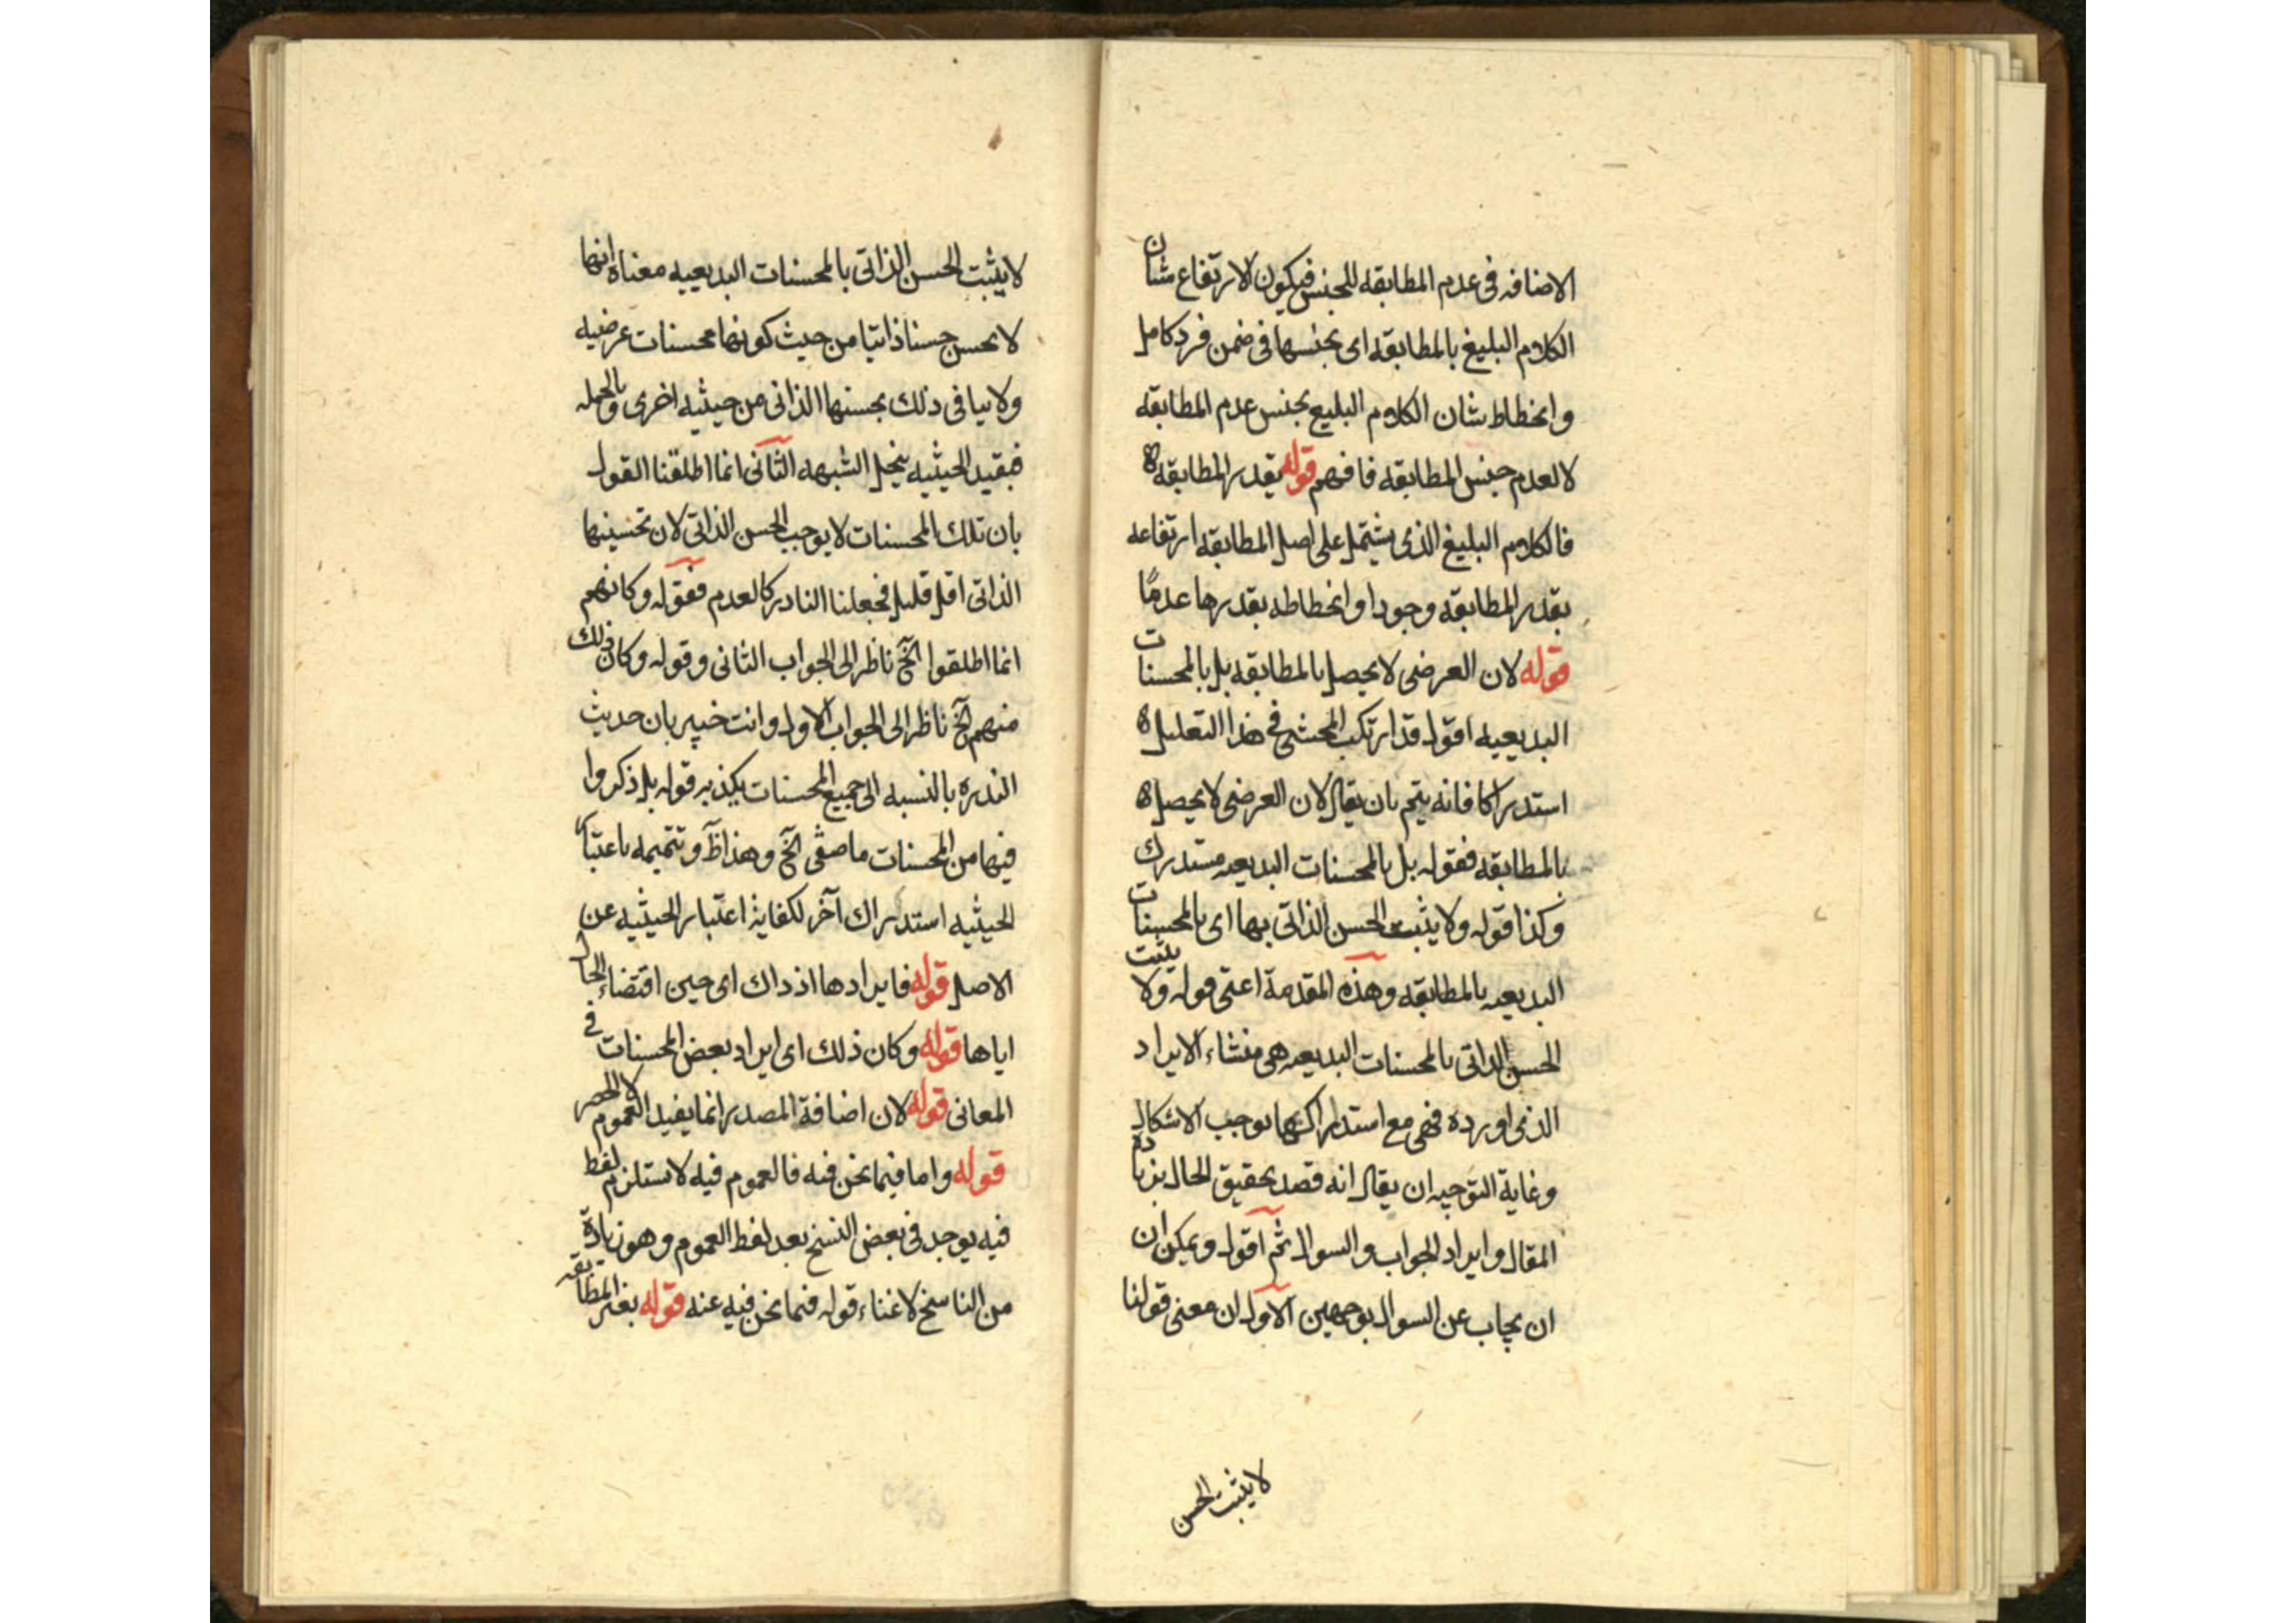 الاضافه فى عدم المطابقه للجنس فيكون لارتفاع شان
الكلام البليغ بالمطابقه اى بجنسها فى ضمن فرد كامل
وانحطاط شان الكلام البليغ بجنس عدم المطابقه
لا لعدم جنس المطابقه فافهم قوله بقدر المطابقه ه
فالكلام البليغ الذى يشتمل على اصل المطابقه ارتفاعه
بقدر المطابقه وجودا وانحطاطه بقدرها عدمًا
قوله لان العرضى لا يحصل بالمطابقه بل بالمحسنات
البديعيه اقول قد ارتكب المحشى فى هذا التعليل ه
استدراكا فانه يتم بان يقال لان العرضى لا يحصل ه
بالمطابقه فقوله بل بالمحسنات البديعيه مستدرك
وكذا قوله ولا يثبت الحسن الذاتى بها اى بالمحسنات
البديعيه بالمطابقه وهذه المقدمة اعنى قوله ولا يثبت
الحسن الذاتى بالمحسنات البديعيه هى منشاء الايراد
الذى اورده فهى مع استدراكها توجب الاشكال
وغاية التوجيه ان يقال انه قصد تحقيق الحال بزيادة
المقال وايراد الجواب والسوال ثم اقول ويمكن ان
ان يجاب عن السوال بوجهين الاول ان معنى قولنا
لا يثبت الحسن
لا يثبت الحسن الذاتى بالمحسنات البديعيه معناه انها
لا يحسن حسنا ذاتيا من حيث كونها محسنات عرضيه
ولا ينافى ذلك بحسنها الذاتى من حيثيه اخرى وبالجمله
فبقيد الحيثيه ينحل الشبهه الثانى انما اطلقنا القول
بان تلك المحسنات لا يوجب الحسن الذاتى لان تحسينها
الذاتى اقل قليل فجعلنا النادر كالعدم فقوله وكانهم
انما اطلقوا الخ ناظر الى الجواب الثانى وقوله وكان ذلك
منهم الخ ناظر الى الجواب الاول وانت خبير بان حديث
الندره بالنسبه الى جميع المحسنات يكذبه قوله بل ذكروا
فيها من المحسنات ما صفى الخ وهذا ظ وتتميمه باعتبار
الحيثيه استدراك آخر لكفاية اعتبار الحيثيه عن
الاصل قوله فايرادها اذ ذاك اى حين اقتضاء الحال
اياها قوله وكان ذلك اى ايراد بعض المحسنات فى
المعانى قوله لان اضافة المصدر انما يفيد العموم لا الحصر
قوله واما فيما نحن فيه فالعموم فيه لا يستلزم لفظ
فيه يوجد فى بعض النسخ بعد لفظ العموم وهو زيادة
من الناسخ لا غناء قوله فيما نحن فيه عنه قوله بغير المطابقه